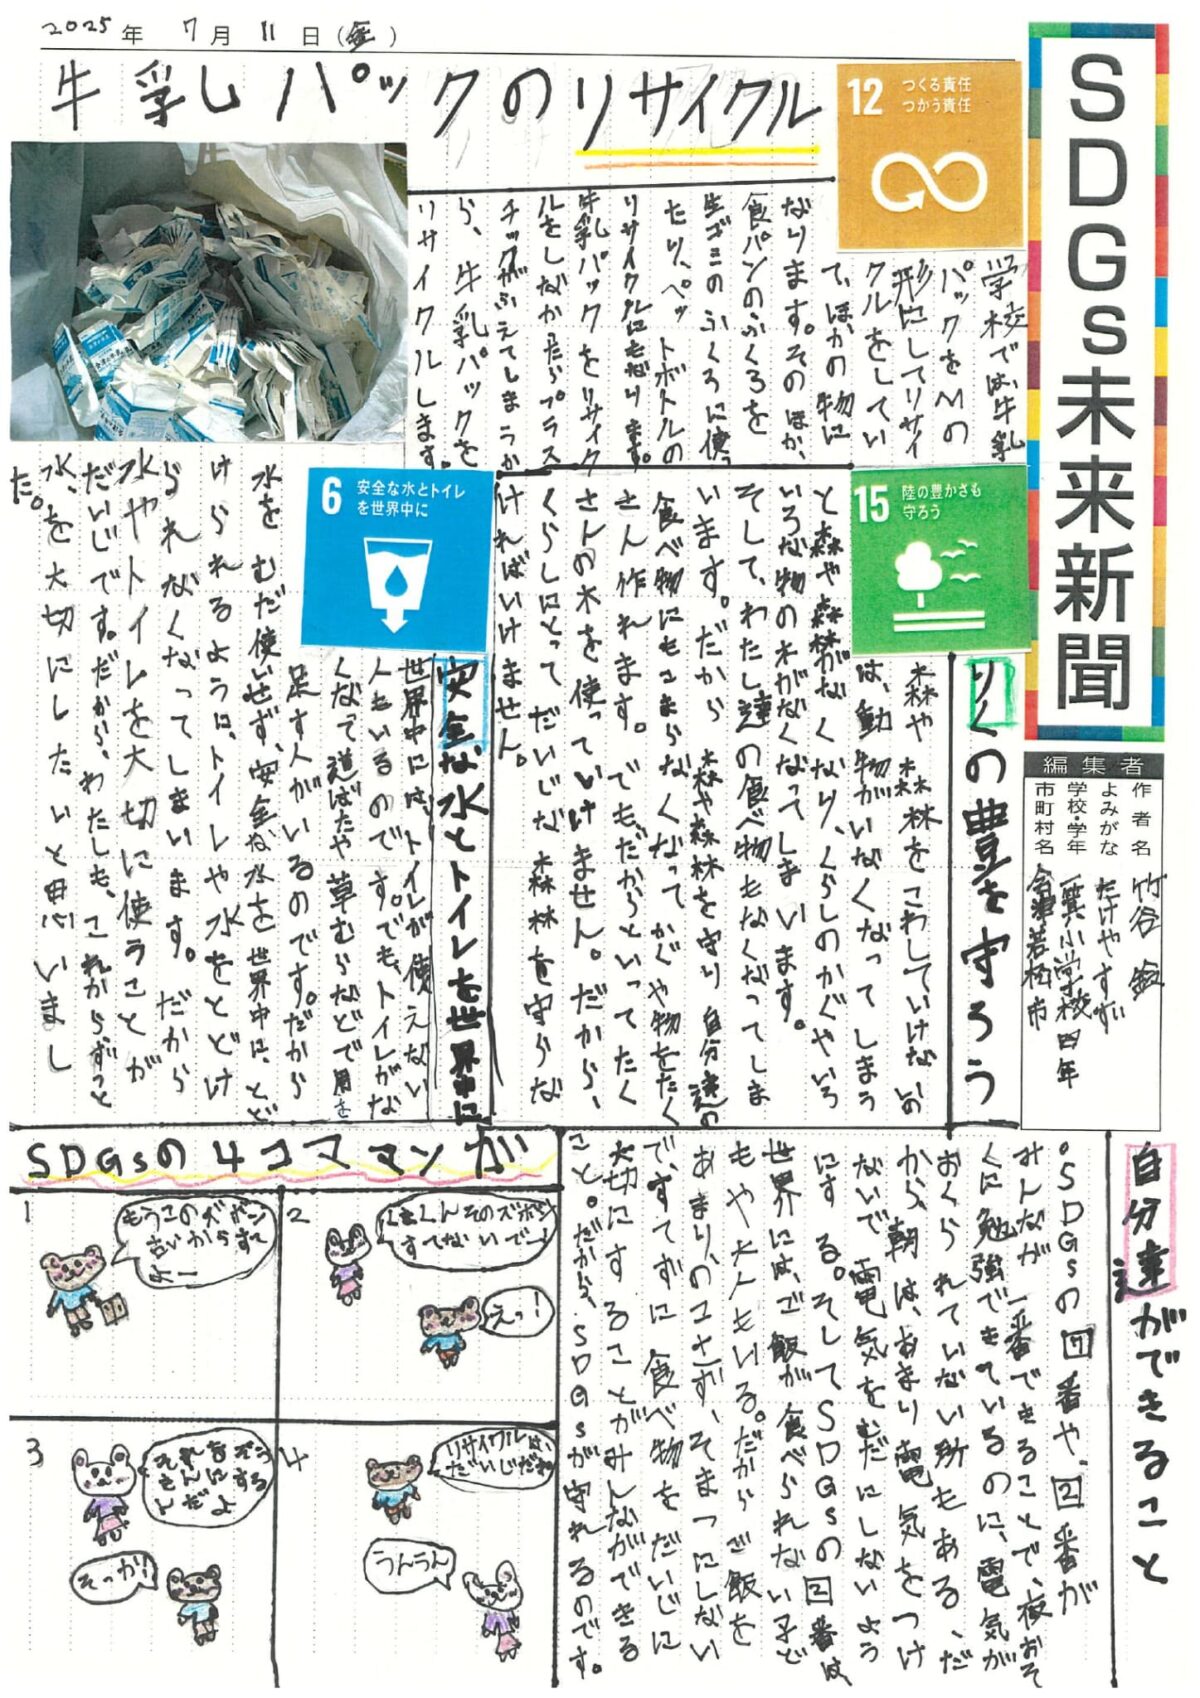 2025年 7月 11日(金)
SDGs未来新聞
編集者
作者名 竹谷 鈴
よみがな たけやすず
学校・学年 一箕小学校 四年
市町村名 会津若松市
牛乳しパックのリサイクル
12 つくる責任
つかう責任
学校では、牛乳
パックをMの
形にしてリサイ
クルをしてい
て、ほかの物に
なります。そのほか、
食パンのふくろを
生ゴミのふくろに使っ
たり、ペットボトルの
リサイクルにもなります。
牛乳パックをリサイク
ルをしなかったらプラス
チックがふえてしまうか
ら、牛乳パックを
リサイクルします。
15 陸の豊かさも
守ろう
りくの豊を守ろう
森や森林をこわしていけないの
は、動物がいなくなってしまう
と森や森林がなくなり、くらしのかぐやいろ
いろな物の木がなくなってしまいます。
そして、わたし達の食べ物もなくなってしま
います。だから森や森林を守り自分達の
食べ物にもこまらなくなってかぐや物をたく
さん作れます。でもだからといってたく
さんの木を使っていけません。だから、
くらしにとってだいじな森林を守らな
ければいけません。
6 安全な水とトイレ
を世界中に
安全な水とトイレを世界中に
世界中には、トイレが使えない
人もいるのです。でも、トイレがな
くなって道ばたや草むらなどで用を
足す人がいるのです。だから
水をむだ使いせず、安全な水を世界中に、とど
けられるように、トイレや水をとどけ
られなくなってしまいます。だから
水やトイレを大切に使うことが
だいじです。だから、わたしも、これからずっと
水、を大切にしたいと思いまし
た。
自分達ができること
。SDGsの7番や、2番が
みんなが一番できることで、夜おそ
くに勉強できているのに、電気が
おくられていない所もある、だ
から、朝は、あまり電気をつけ
ないで電気をむだにしないよう
にする。そしてSDGsの2番は、
世界には、ご飯が食べられない子ど
もや大人もいる。だからご飯を
あまりのこさず、そまつにしない
で、すてずに食べ物をだいじに
大切にすることがみんなができる
こと。だから、SDGsが守れるのです。
SDGsの4コママンガ
1
もうこのズボン
古いからすて
よー
2
くまくんそのズボン
すてないでー!
えっ!
3
それなら
きふ
するんだよ
そっか!
4
リサイクルは、
だいじだね
うんうん